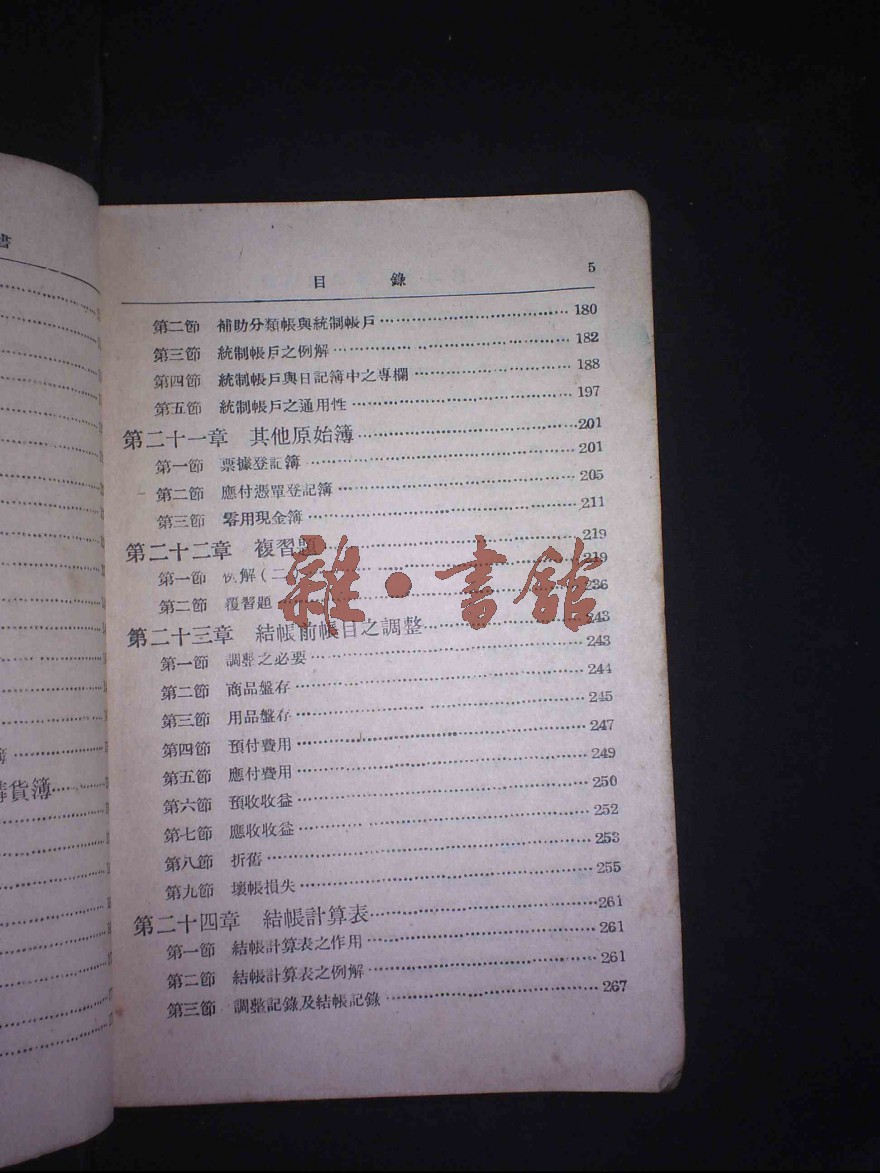 書
簿
貨簿
目 錄 5
第二節 補助分類帳與統制帳戶 180
第三節 統制帳戶之例解 182
第四節 統制帳戶與日記簿中之專欄 188
第五節 統制帳戶之通用性 197
第二十一章 其他原始簿 201
第一節 票據登記簿 201
第二節 應付憑單登記簿 205
第三節 零用現金簿 211
第二十二章 複習題 219
第一節 例解(二) 219
第二節 覆習題 236
第二十三章 結帳前帳目之調整 243
第一節 調整之必要 243
第二節 商品盤存 244
第三節 用品盤存 245
第四節 預付費用 247
第五節 應付費用 249
第六節 預收收益 250
第七節 應收收益 252
第八節 折舊 253
第九節 壞帳損失 255
第二十四章 結帳計算表 261
第一節 結帳計算表之作用 261
第二節 結帳計算表之例解 261
第三節 調整記錄及結帳記錄 267
雜·書舘